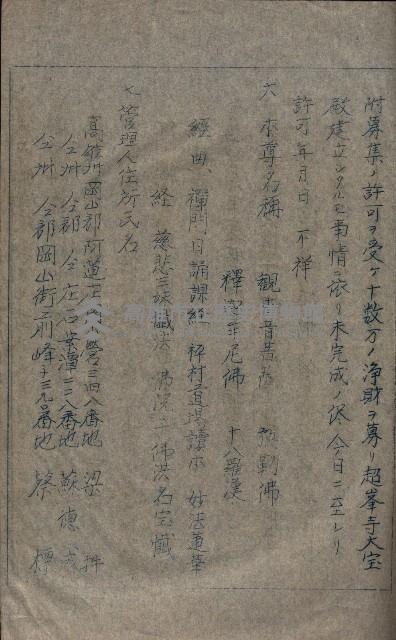 附募集ノ許可ヲ受ケ十数万ノ浄財ヲ募リ超峯寺大宝
殿建立シタルモ事情ニ依リ未完成ノ侭今日ニ至レリ
許可年月日 不祥
六 本尊名稱 觀世音菩薩 弥勒佛
釋迦牟尼佛 十八羅漢
經典 禪門日誦課經 梁皇道場讀本 妙法蓮華
経 慈悲三昧懺法 佛説千佛洪名宝懺
七 管理人住所氏名
高雄州岡山郡阿蓮庄 三四八番地 梁
仝州 仝郡 仝庄 二二八番地 蘇德
仝州 仝郡岡山街前峰子三九番地 蔡